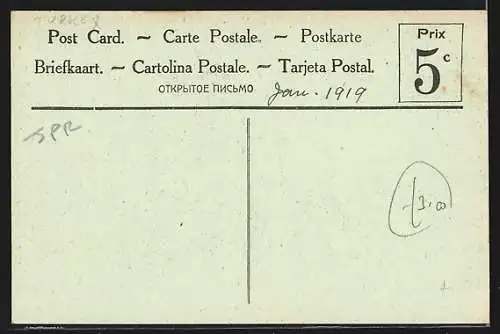 TURKEY
Post Card. ~ Carte Postale. ~ Postkarte
Briefkaart. ~ Cartolina Postale. ~ Tarjeta Postal.
ОТКРЫТОЕ ПИСЬМО
Jan. 1919
Prix
5 c
SPR